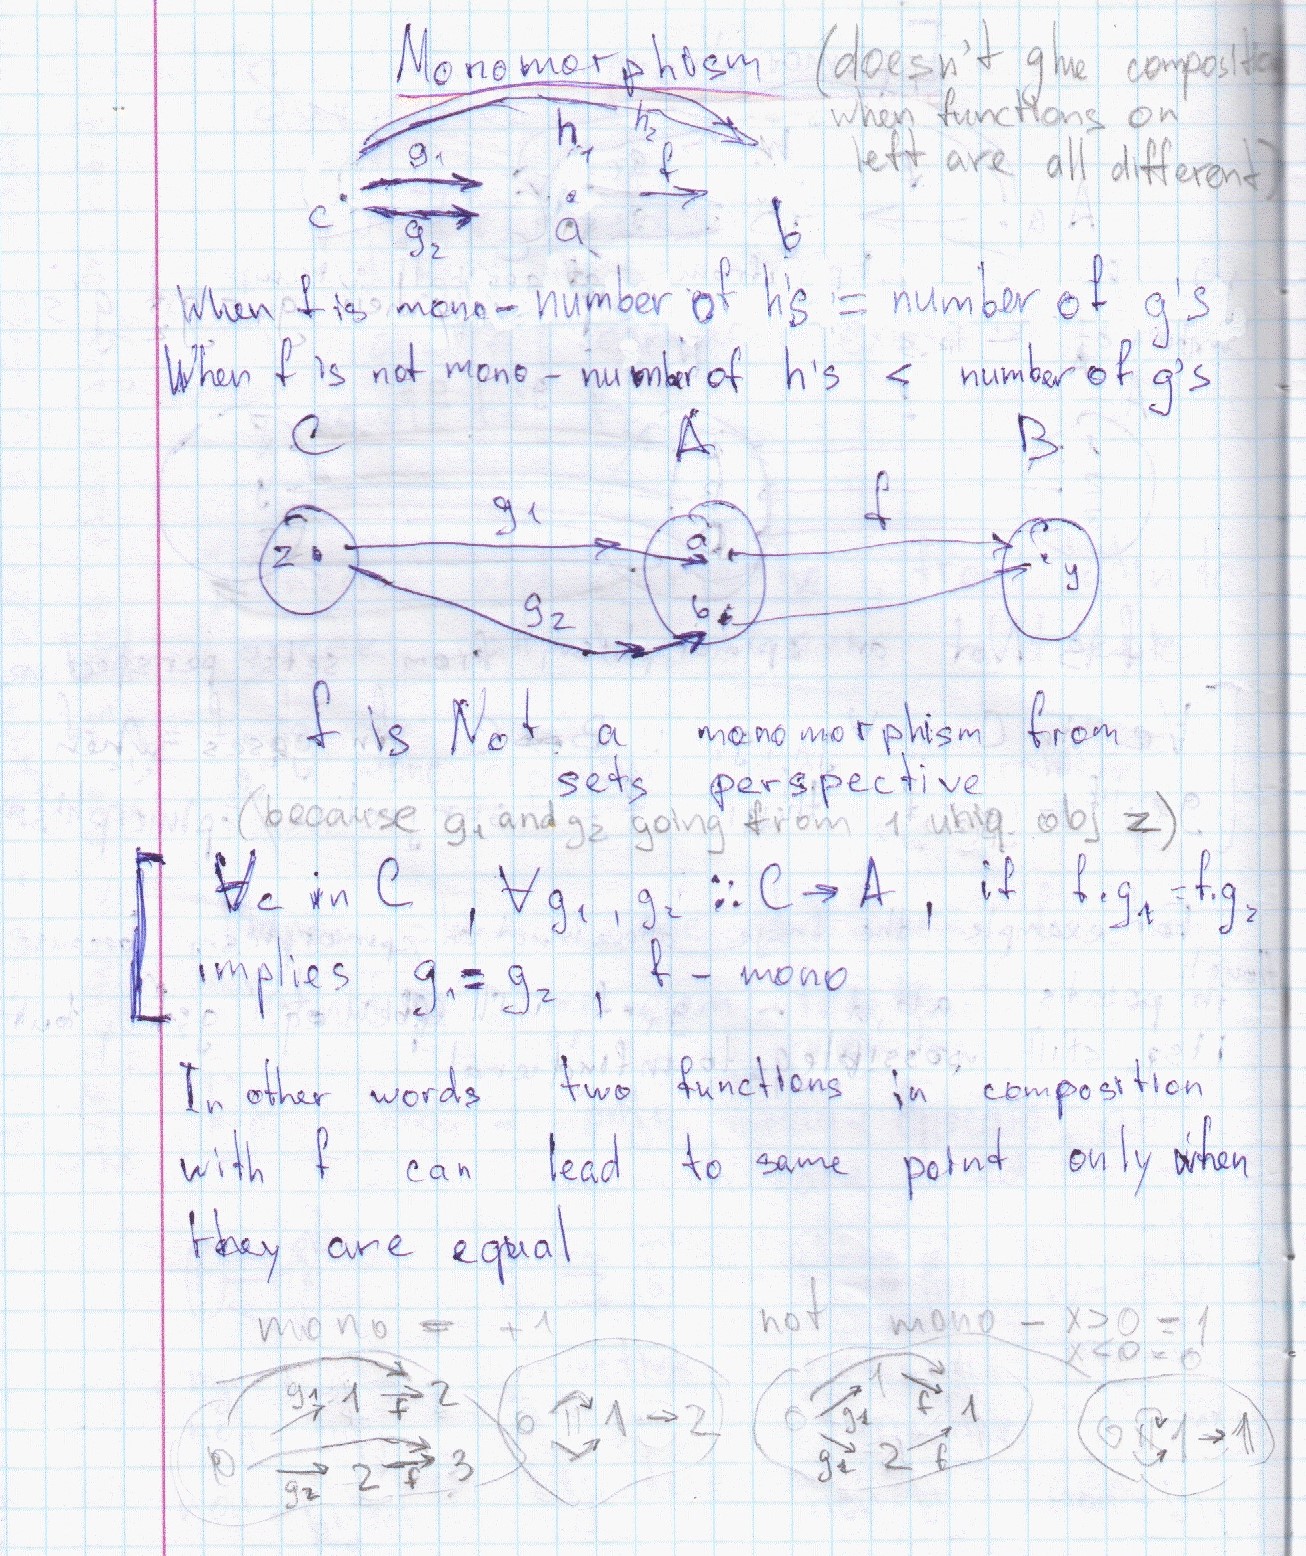 Monomorphism (doesn't glue composition
when functions on
left are all different)
h1 h2
g1 f
c a b
g2
When f is mono - number of h's = number of g's
When f is not mono - number of h's < number of g's
C A B
g1 f
z a y
g2 b
f is Not a monomorphism from
sets perspective
(because g1 and g2 going from 1 uniq. obj z)
∀c in C , ∀g1, g2 :: C → A , if f.g1 = f.g2
implies g1 = g2 , f - mono
In other words two functions in composition
with f can lead to same point only when
they are equal
mono = +1 not mono - x>0 = 1
x<0 = 0
g1 1 f 2
0 g2 2 f 3
0 1 → 2
0 g1 1 f 1
2 f
0 1 → 1